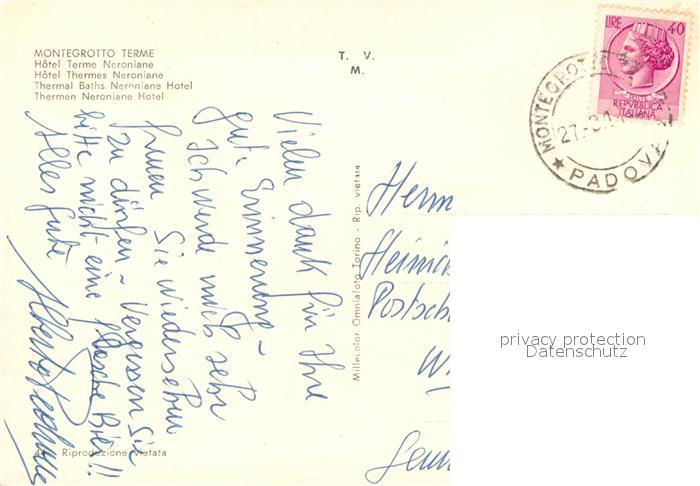 MONTEGROTTO TERME
Hôtel Terme Neroniane
Hôtel Thermes Neroniane
Thermal Baths Neroniane Hotel
Thermen Neroniane Hotel
T. V.
M.
LIRE 40
REPVBBLICA
ITALIANA
MONTEGROTTO
27.
PADOVA
Vielen dank für Ihre
gute Erinnerung -
Ich werde mich sehr
freuen Sie Wiedersehen
zu dürfen - Vergessen Sie
bitte nicht eine flasche Bier!!
Alles gute
Millecolor Omniafoto Torino - Rip. vietata
Herrn
Heinich
Postsch
privacy protection
Datenschutz
Riproduzione vietata